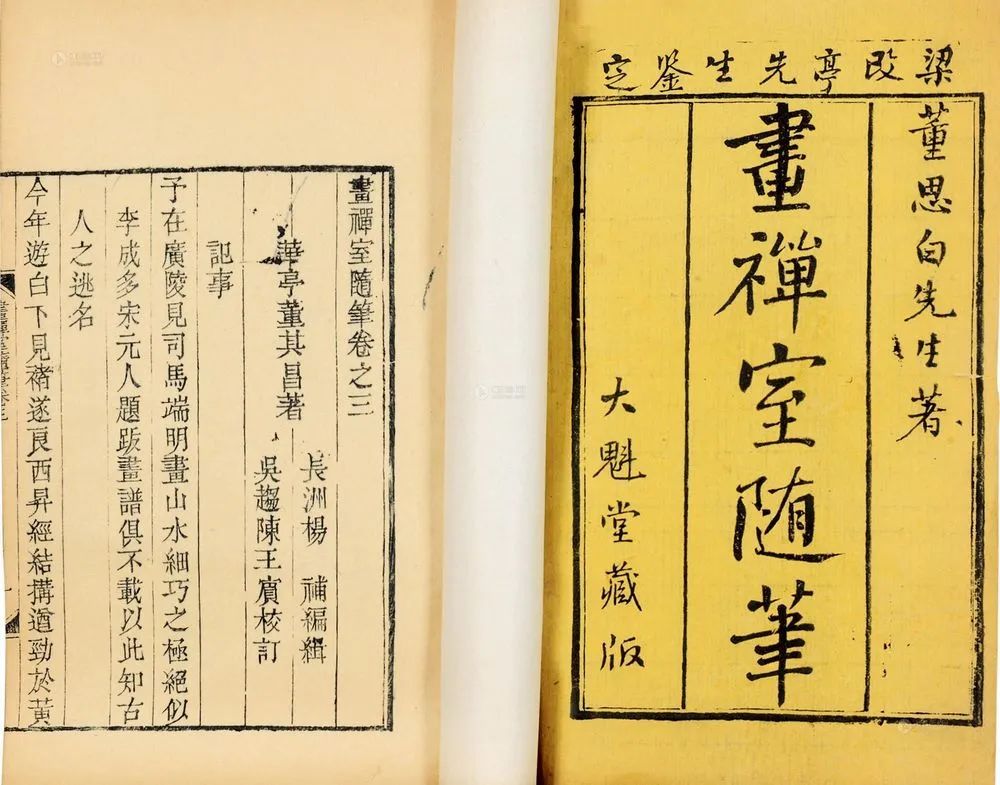 梁改亭先生鉴定
董思白先生著
畫禪室随筆
大魁堂藏版
畫禪室隨筆卷之三
華亭董其昌著
長洲楊 補編緝
吳趨陳王賓校訂
記事
予在廣陵見司馬端明畫山水細巧之極絕似
李成多宋元人題跋畫譜俱不載以此知古
人之逃名
今年遊白下見禇遂良西昇經結搆遒勁於黃